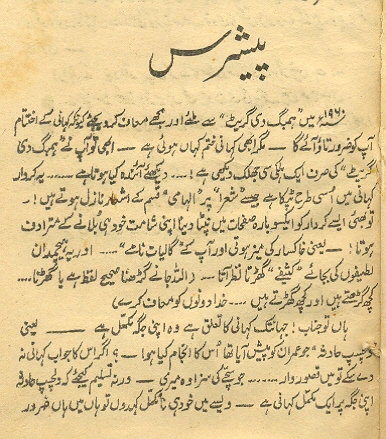 پیشرس
سنہ ۱۹۶۰ء میں "ہمبگ دی گریٹ" سے ملئے اور مجھے معاف کر دیجئے کیونکہ کہانی کے اختتام پر
آپ کو ضرور تاؤ آئے گا — مگر ابھی کہانی ختم کہاں ہوئی ہے — ابھی تو آپ نے ہمبگ دی
گریٹ" کی صرف ایک ہلکی سی جھلک دیکھی ہے! .... دیکھئے آئندہ کیا ہوتا ہے .... یہ کردار
کہانی میں اسی طرح ٹپکا ہے جیسے "شعرا" پر "الہامی" قسم کے اشعار نازل ہوتے ہیں! ۔
تو بھئی ایسے کردار کو ایکسو بارہ صفحات میں نپٹا دینا اپنی شامت خود ہی بلانے کے مترادف
ہوتا! — یعنی خاکسار کی میز ہوتی اور آپ کے "گالیات نامے" .... اور یہ ہیچمدان
لطیفوں کی بجائے "کثیفے" گھڑتا نظر آتا — (اللہ جانے گڑھنا صحیح لفظ ہے یا گھڑنا ....
کچھ گڑھتے ہیں اور کچھ گھڑتے ہیں .... خدا دونوں کو معاف کرے)
ہاں تو جناب! جہانتک کہانی کا تعلق ہے وہ اپنی جگہ مکمل ہے — یعنی
دلچسپ حادثہ" جو عمران کو پیش آیا تھا اُس کا انجام کیا ہوا — ؟ اگر اس کا جواب کہانی نہ
دے سکے تو میں قصوروار ........ جو بیچ کی سزا وہ میری — ورنہ تسلیم کیجئے کہ دلچسپ حادثہ
اپنی جگہ پر ایک مکمل کہانی ہے — ویسے میں خود ہی نامکمل کہہ دوں تو ہاں میں ہاں ضرور